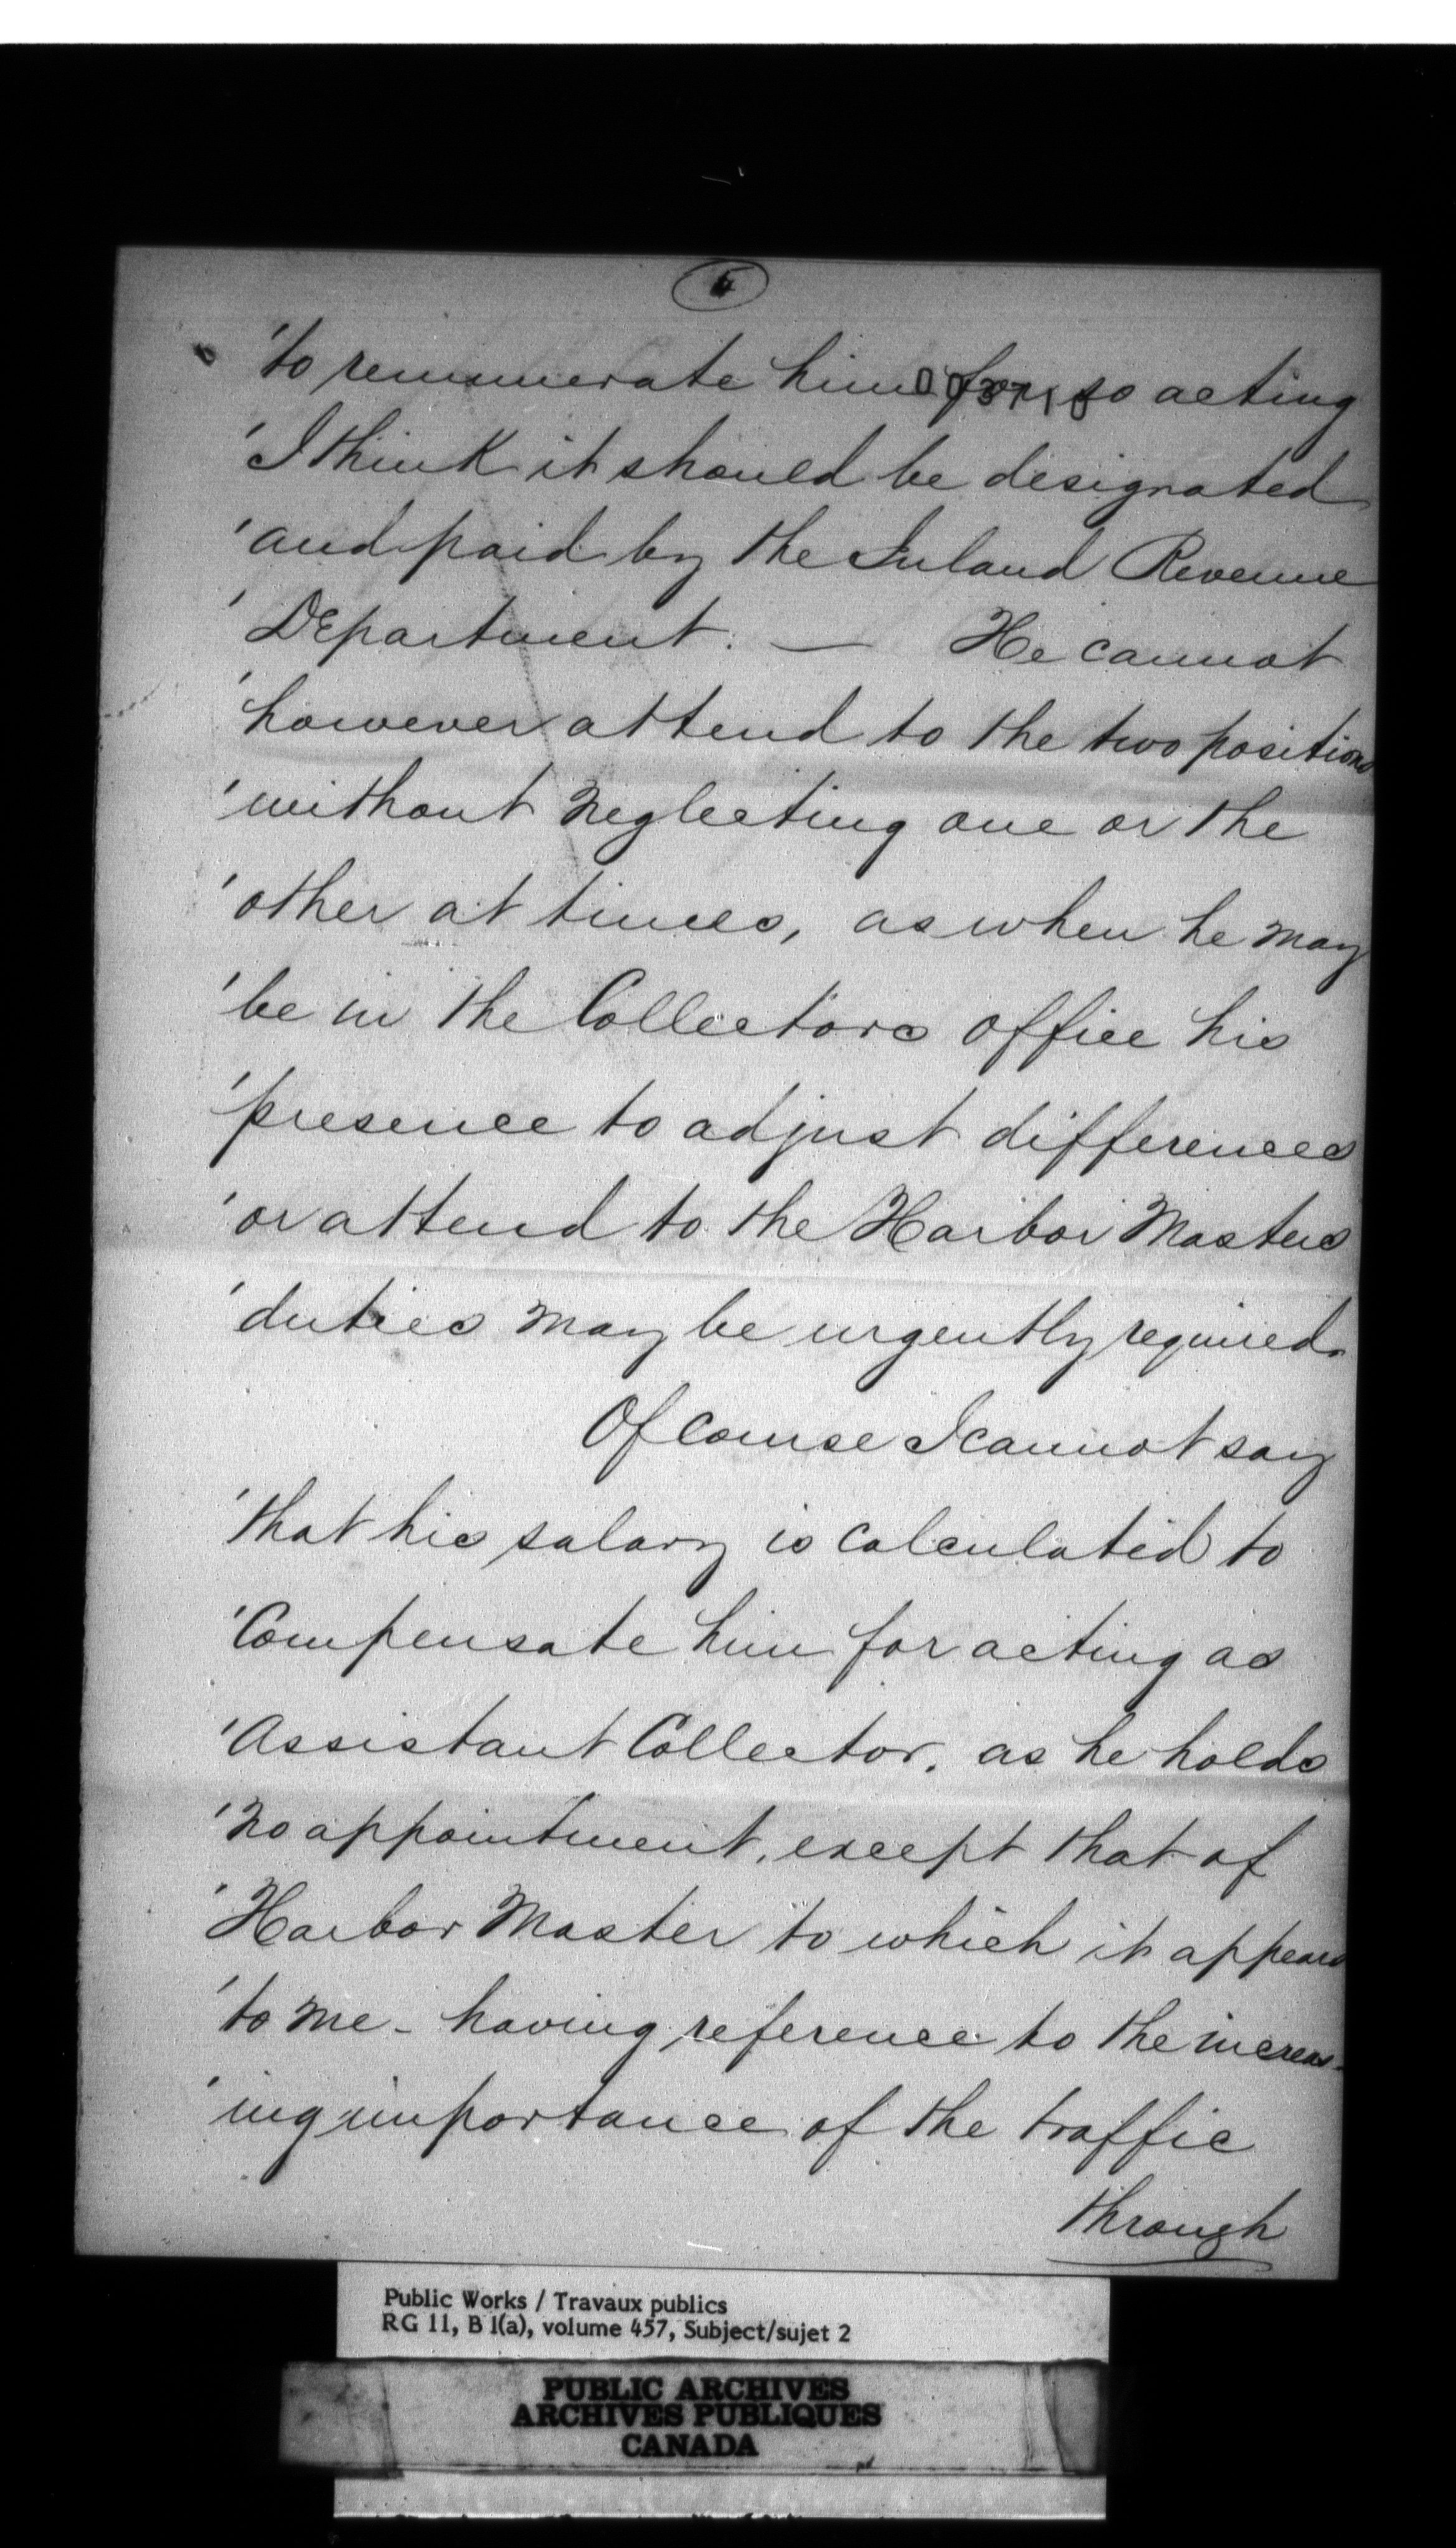 'to remunerate him for so acting
'I think it should be designated
'and paid by the Inland Revenue
'Department. — He cannot
'however attend to the two positions
'without neglecting one or the
'other at times, as when he may
'be in the Collectors office his
'presence to adjust differences
'or attend to the Harbor Masters
'duties may be urgently required.
Of course I cannot say
'that his salary is calculated to
'Compensate him for acting as
'Assistant Collector, as he holds
'no appointment, except that of
'Harbor Master to which it appears
'to me - having reference to the increas-
'ing importance of the traffic
through
Public Works / Travaux publics
RG 11, B 1(a), volume 457, Subject/sujet 2
PUBLIC ARCHIVES
ARCHIVES PUBLIQUES
CANADA